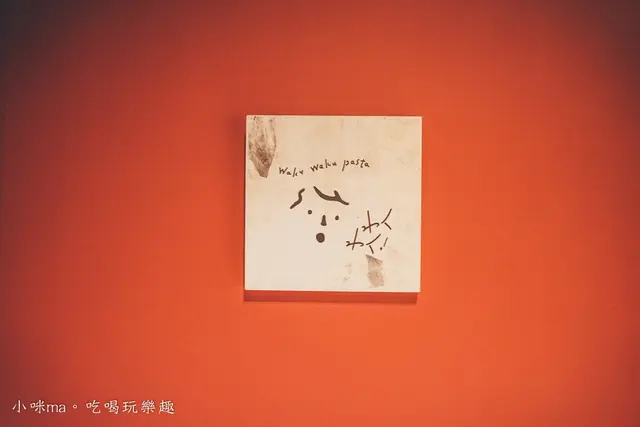 Waku waku pasta
わく
わく!
小咪ma。吃喝玩樂趣